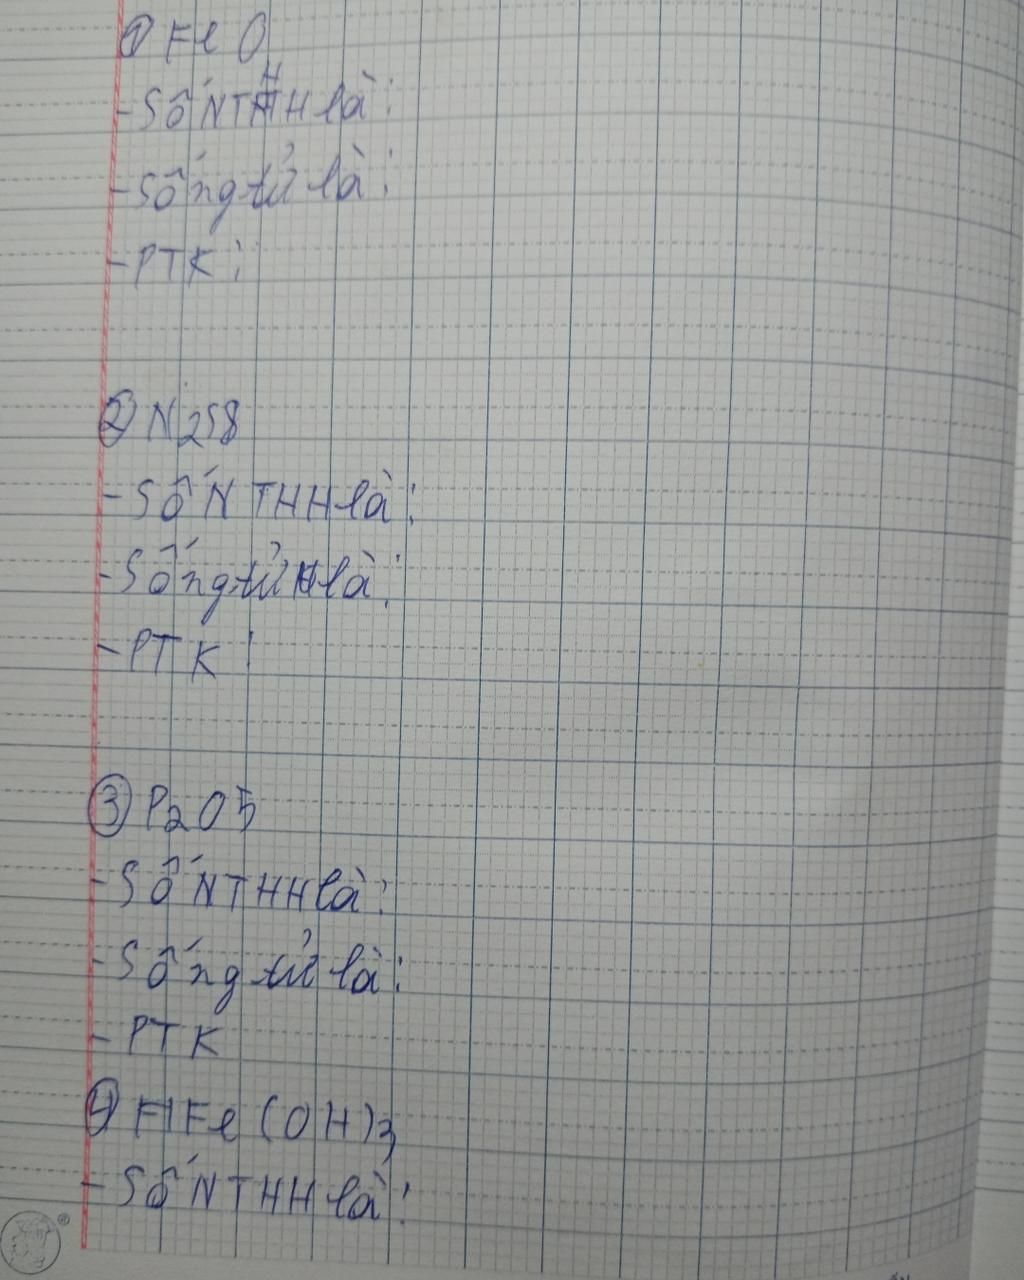 ① FeO
- Số NTHH là:
- Số ng tử là:
- PTK:
② N2S8
- Số NTHH là:
- Số ng tử là:
- PTK:
③ P2O5
- Số NTHH là:
- Số ng tử là:
- PTK
④ Fe(OH)3
- Số NTHH là: